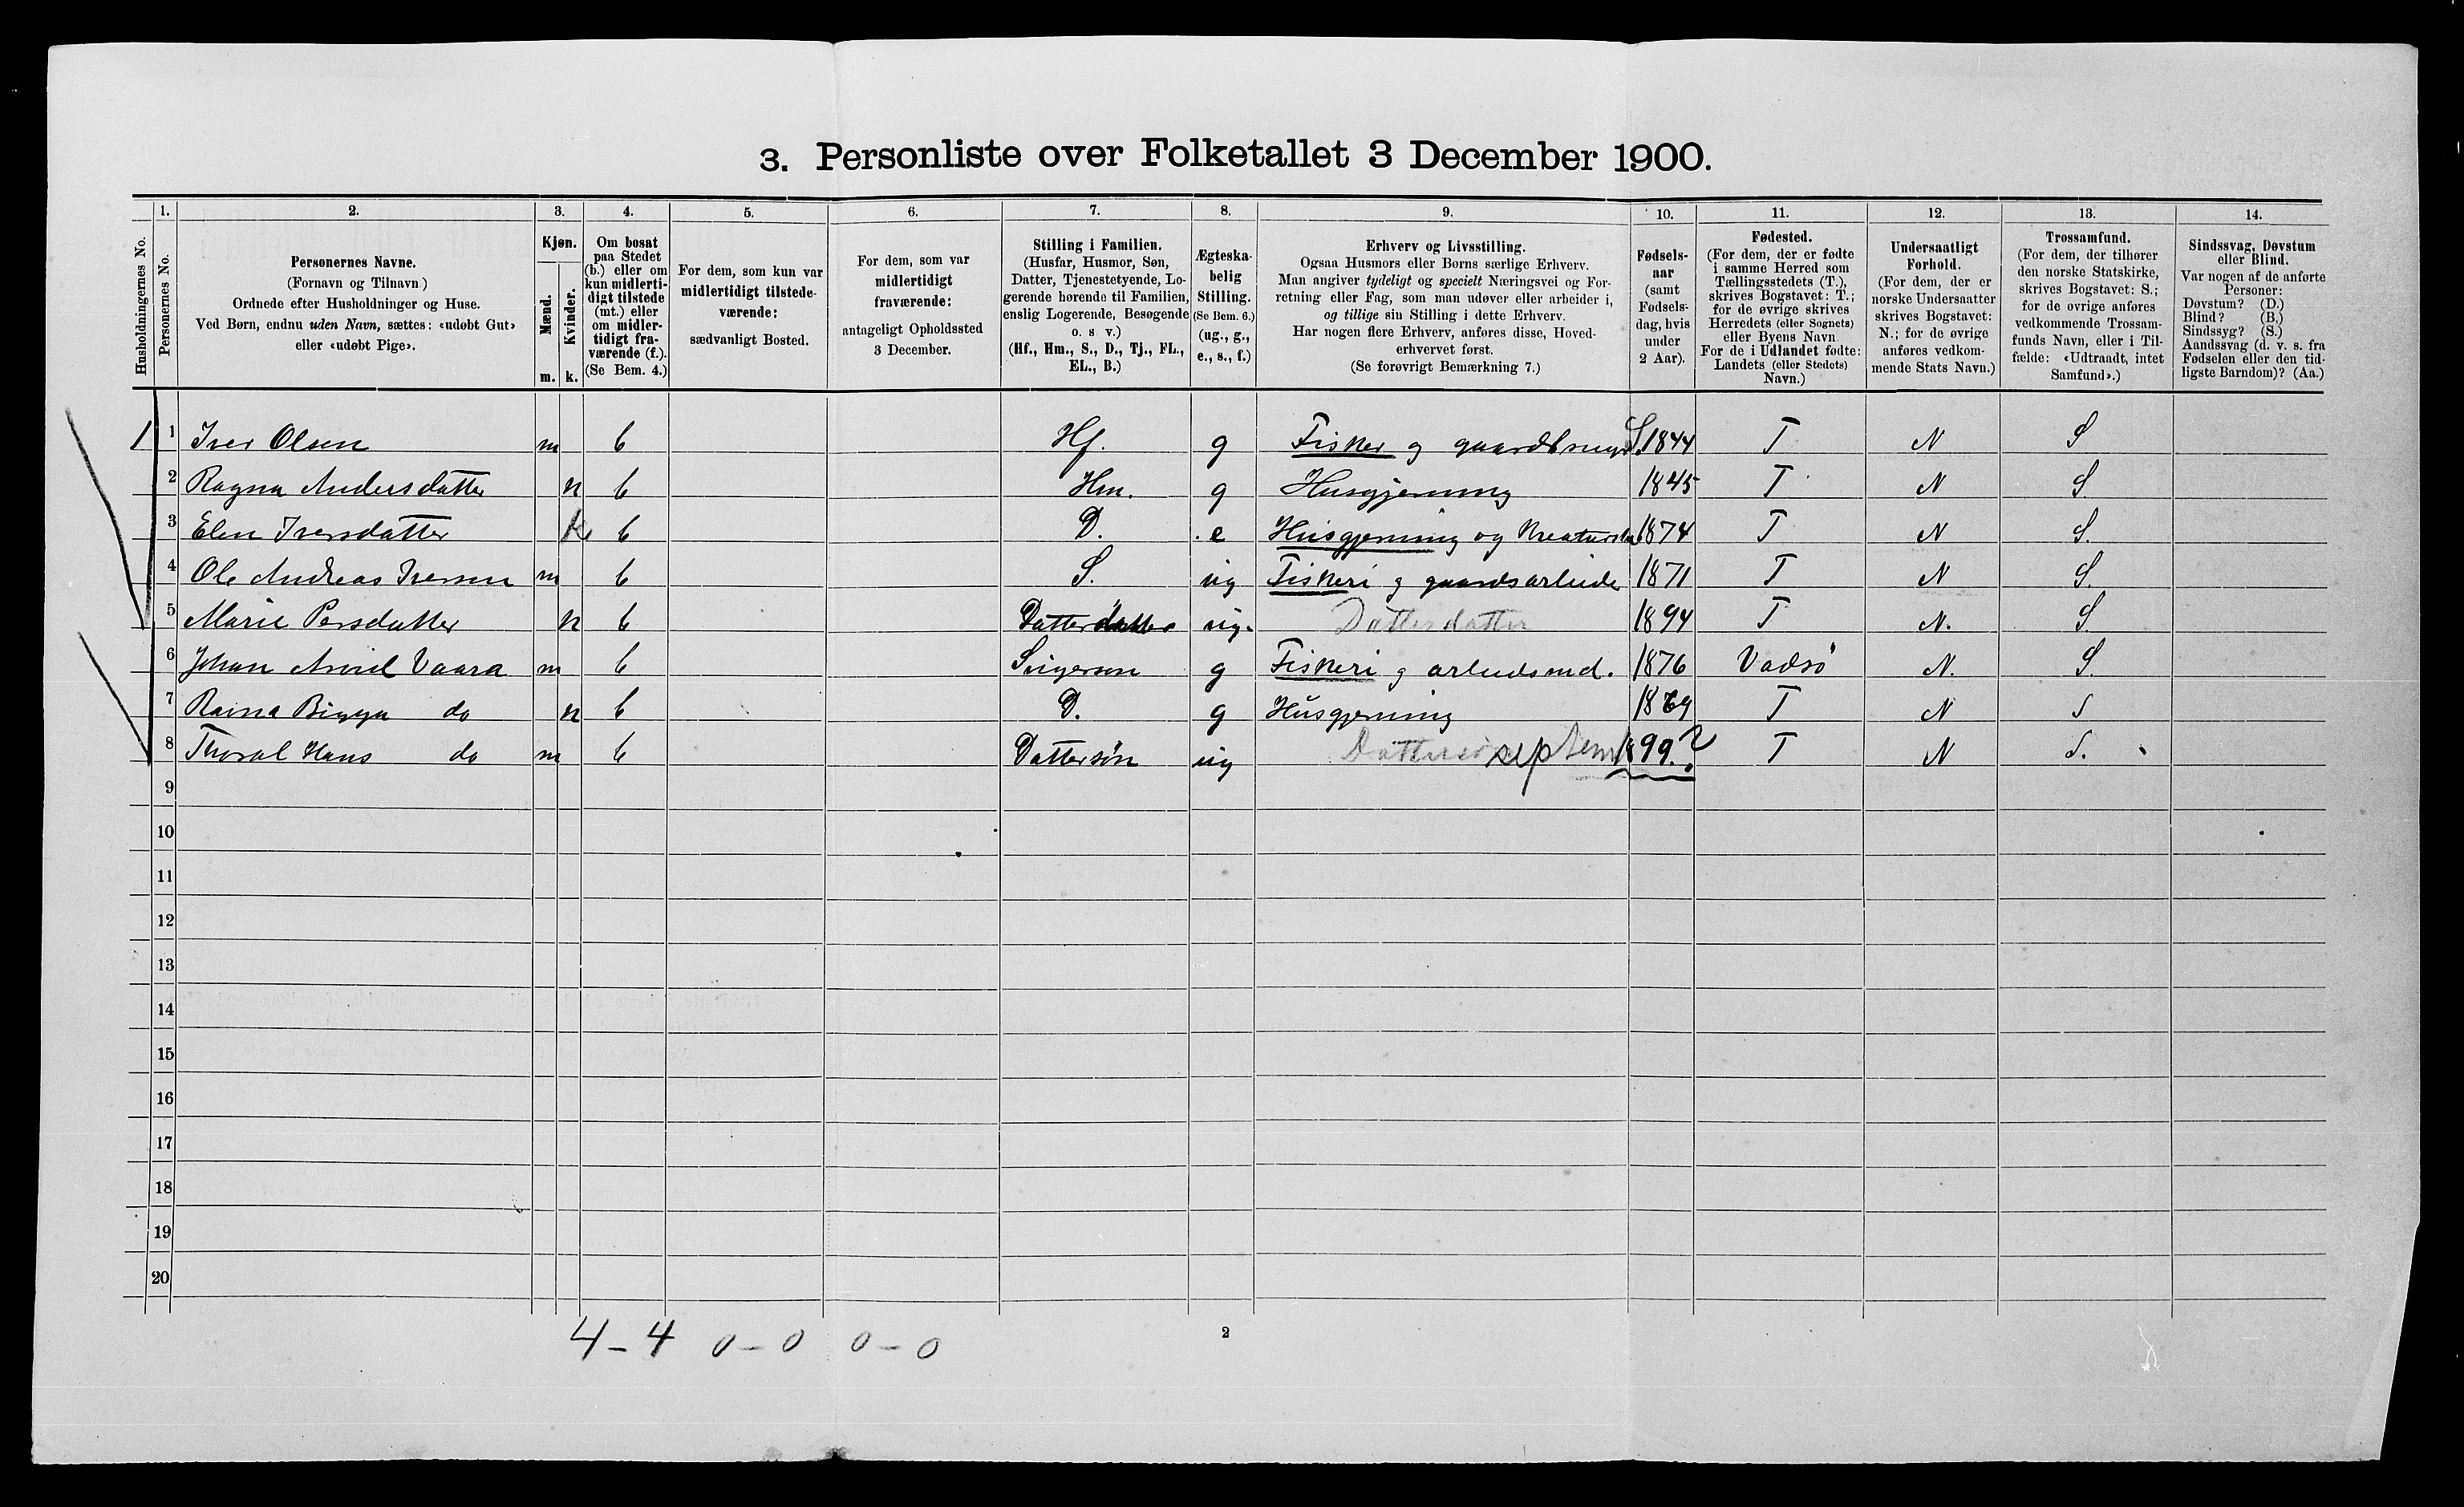 3. Personliste over Folketallet 3 December 1900.
1. 2. 3. 4. 5. 6. 7. 8. 9. 10. 11. 12. 13. 14.
Husholdningernes No.
Personernes No.
Personernes Navne.
(Fornavn og Tilnavn.)
Ordnede efter Husholdninger og Huse.
Ved Børn, endnu uden Navn, sættes: «udøbt Gut»
eller «udøbt Pige».
Kjøn.
Mænd.
Kvinder.
m. k.
Om bosat
paa Stedet
(b.) eller om
kun midlerti-
digt tilstede
(mt.) eller
om midler-
tidigt fra-
værende (f.).
(Se Bem. 4.)
For dem, som kun var
midlertidigt tilstede-
værende:
sædvanligt Bosted.
For dem, som var
midlertidigt
fraværende:
antageligt Opholdssted
3 December.
Stilling i Familien.
(Husfar, Husmor, Søn,
Datter, Tjenestetyende, Lo-
gerende hørende til Familien,
enslig Logerende, Besøgende
o. s v.)
(Hf., Hm., S., D., Tj., FL.,
EL., B.)
Ægteska-
belig
Stilling.
(Se Bem. 6.)
(ug., g.,
e., s., f.)
Erhverv og Livsstilling.
Ogsaa Husmors eller Børns særlige Erhverv.
Man angiver tydeligt og specielt Næringsvei og For-
retning eller Fag, som man udøver eller arbeider i,
og tillige sin Stilling i dette Erhverv.
Har nogen flere Erhverv, anføres disse, Hoved-
erhvervet først.
(Se forøvrigt Bemærkning 7.)
Fødsels-
aar
(samt
Fødsels-
dag, hvis
under
2 Aar).
Fødested.
(For dem, der er fødte
i samme Herred som
Tællingsstedets (T.),
skrives Bogstavet: T.;
for de øvrige skrives
Herredets (eller Sognets)
eller Byens Navn
For de i Udlandet fødte:
Landets (eller Stedets)
Navn.)
Undersaatligt
Forhold.
(For dem, der er
norske Undersaatter
skrives Bogstavet:
N.; for de øvrige
anføres vedkom-
mende Stats Navn.)
Trossamfund.
(For dem, der tilhører
den norske Statskirke,
skrives Bogstavet: S.;
for de øvrige anføres
vedkommende Trossam-
funds Navn, eller i Til-
fælde: «Udtraadt, intet
Samfund».)
Sindssvag, Døvstum
eller Blind.
Var nogen af de anførte
Personer:
Døvstum? (D.)
Blind? (B.)
Sindssyg? (S.)
Aandssvag (d. v. s. fra
Fødselen eller den tid-
ligste Barndom)? (Aa.)
1 1 Iver Olsen m b Hf. g Fisker g S. 1844 T N S
2 Ragna Andersdatter k b Hm. g Husgjerning 1845 T N S
3 Elen Iversdatter k b D. e Husgjerning og 1874 T N S.
4 Ole Andreas Iversen m b S. ug Fiskeri g gaardsarbeide 1871 T N S.
5 Marie Persdatter k b Datterdatter ug. Datterdatter 1894 T N. S.
6 Johan Arvid Vaara m b Svigersøn g Fiskeri g arbeidsmd. 1876 Vadsö N. S.
7 Raina Bigga do k b D. g Husgjerning 1869 T N S
8 Thoral Hans do m b Dattersön ug septem 1899.? T N S.
9
10
11
12
13
14
15
16
17
18
19
20
4-4 0-0 0-0
2